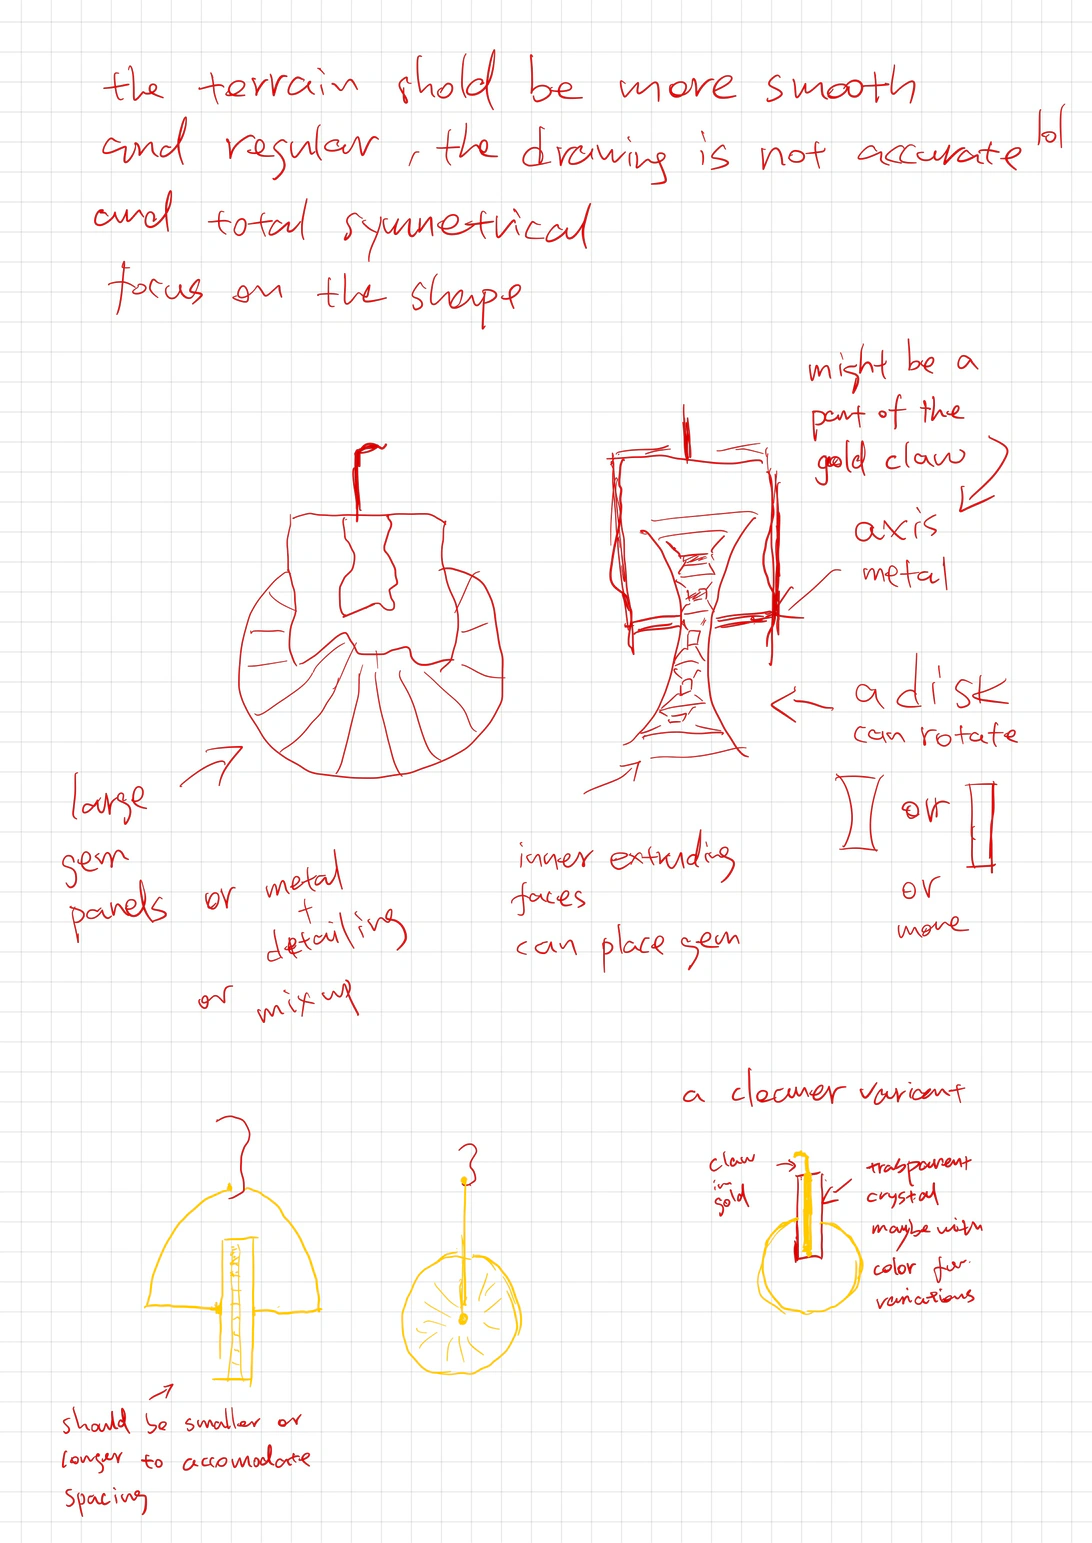 the terrain shold be more smooth
and regular, the drawing is not accurate lol
and total symmetrical
focus on the shape
might be a
part of the
gold claw
axis
metal
a disk
can rotate
or
or
more
large
gem
panels or metal
+
detailing
or mix up
inner extruding
faces
can place gem
a cleaner variant
claw
in
gold
trasparent
crystal
maybe with
color for
variations
should be smaller or
longer to accomodate
spacing